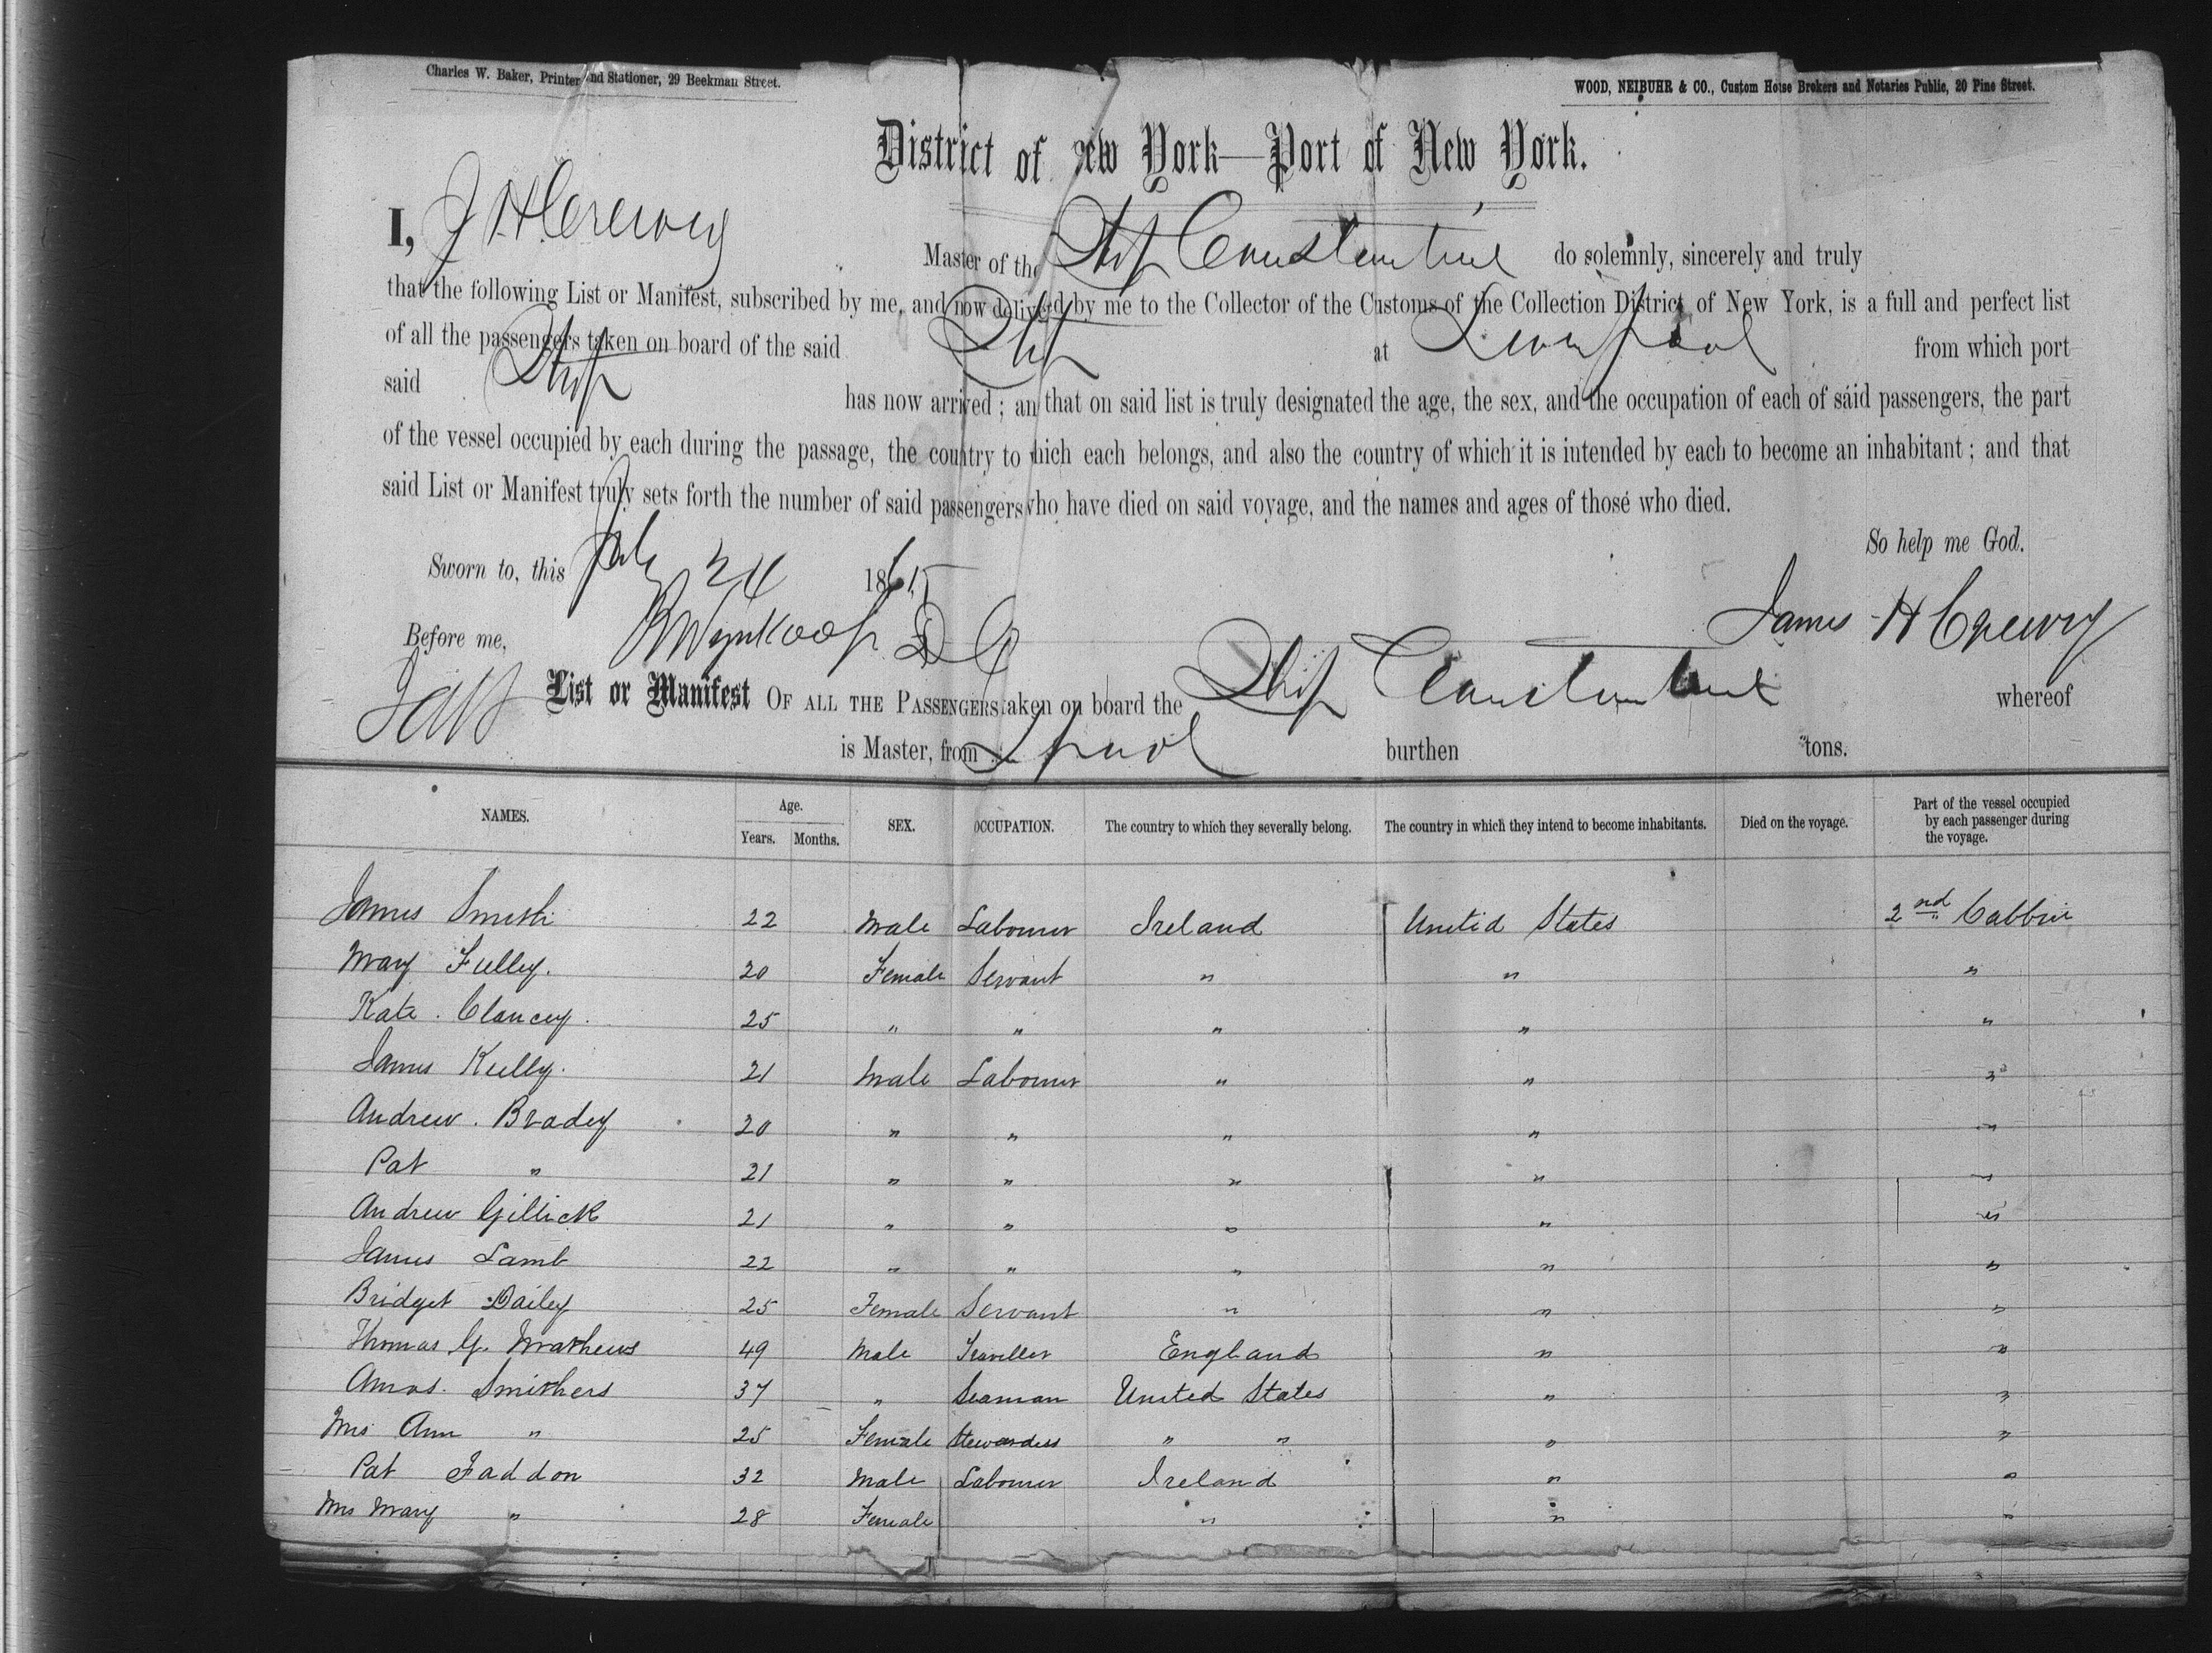 Charles W. Baker, Printer and Stationer, 29 Beekman Street.
WOOD, NEIBUHR & CO., Custom House Brokers and Notaries Public, 20 Pine Street.
District of New York—Port of New York.
I, J H Creevy Master of the Ship Constantine do solemnly, sincerely and truly
that the following List or Manifest, subscribed by me, and now delivered by me to the Collector of the Customs of the Collection District of New York, is a full and perfect list
of all the passengers taken on board of the said Ship at Liverpool from which port
said Ship has now arrived ; an that on said list is truly designated the age, the sex, and the occupation of each of said passengers, the part
of the vessel occupied by each during the passage, the country to hich each belongs, and also the country of which it is intended by each to become an inhabitant ; and that
said List or Manifest truly sets forth the number of said passengers who have died on said voyage, and the names and ages of those who died.
So help me God.
Sworn to, this July 24 1865
James H Creevy
Before me, Wynkoop D C
List or Manifest OF ALL THE PASSENGERS taken on board the Ship Constantine whereof
is Master, from Lpool burthen tons.
NAMES. Age. Years. Months. SEX. OCCUPATION. The country to which they severally belong. The country in which they intend to become inhabitants. Died on the voyage. Part of the vessel occupied by each passenger during the voyage.
James Smith 22 Male Labourer Ireland United States 2nd Cabbin
Mary Fulley. 20 Female Servant " " "
Kate Clancey 25 " " " " "
James Kelly. 21 Male Labourer " " "
Andrew Bradey 20 " " " " "
Pat " 21 " " " " "
Andrew Gillick 21 " " " " "
James Lamb 22 " " " " "
Bridget Dailey 25 Female Servant " " "
Thomas G. Mathews 49 Male Traveller England " "
Amos. Smithers 37 " Seaman United States " "
Mrs Ann " 25 Female Stewardess " " " "
Pat Faddon 32 Male Labourer Ireland " "
Mrs Mary " 28 Female " " "